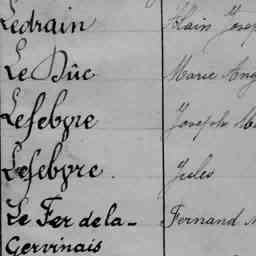 Ledrain Alain Josep
Le Dûc Marie Ang
Lefebvre Joseph Ma
Lefebvre. Jules
Le Fer de la- Fernand
Gervinais